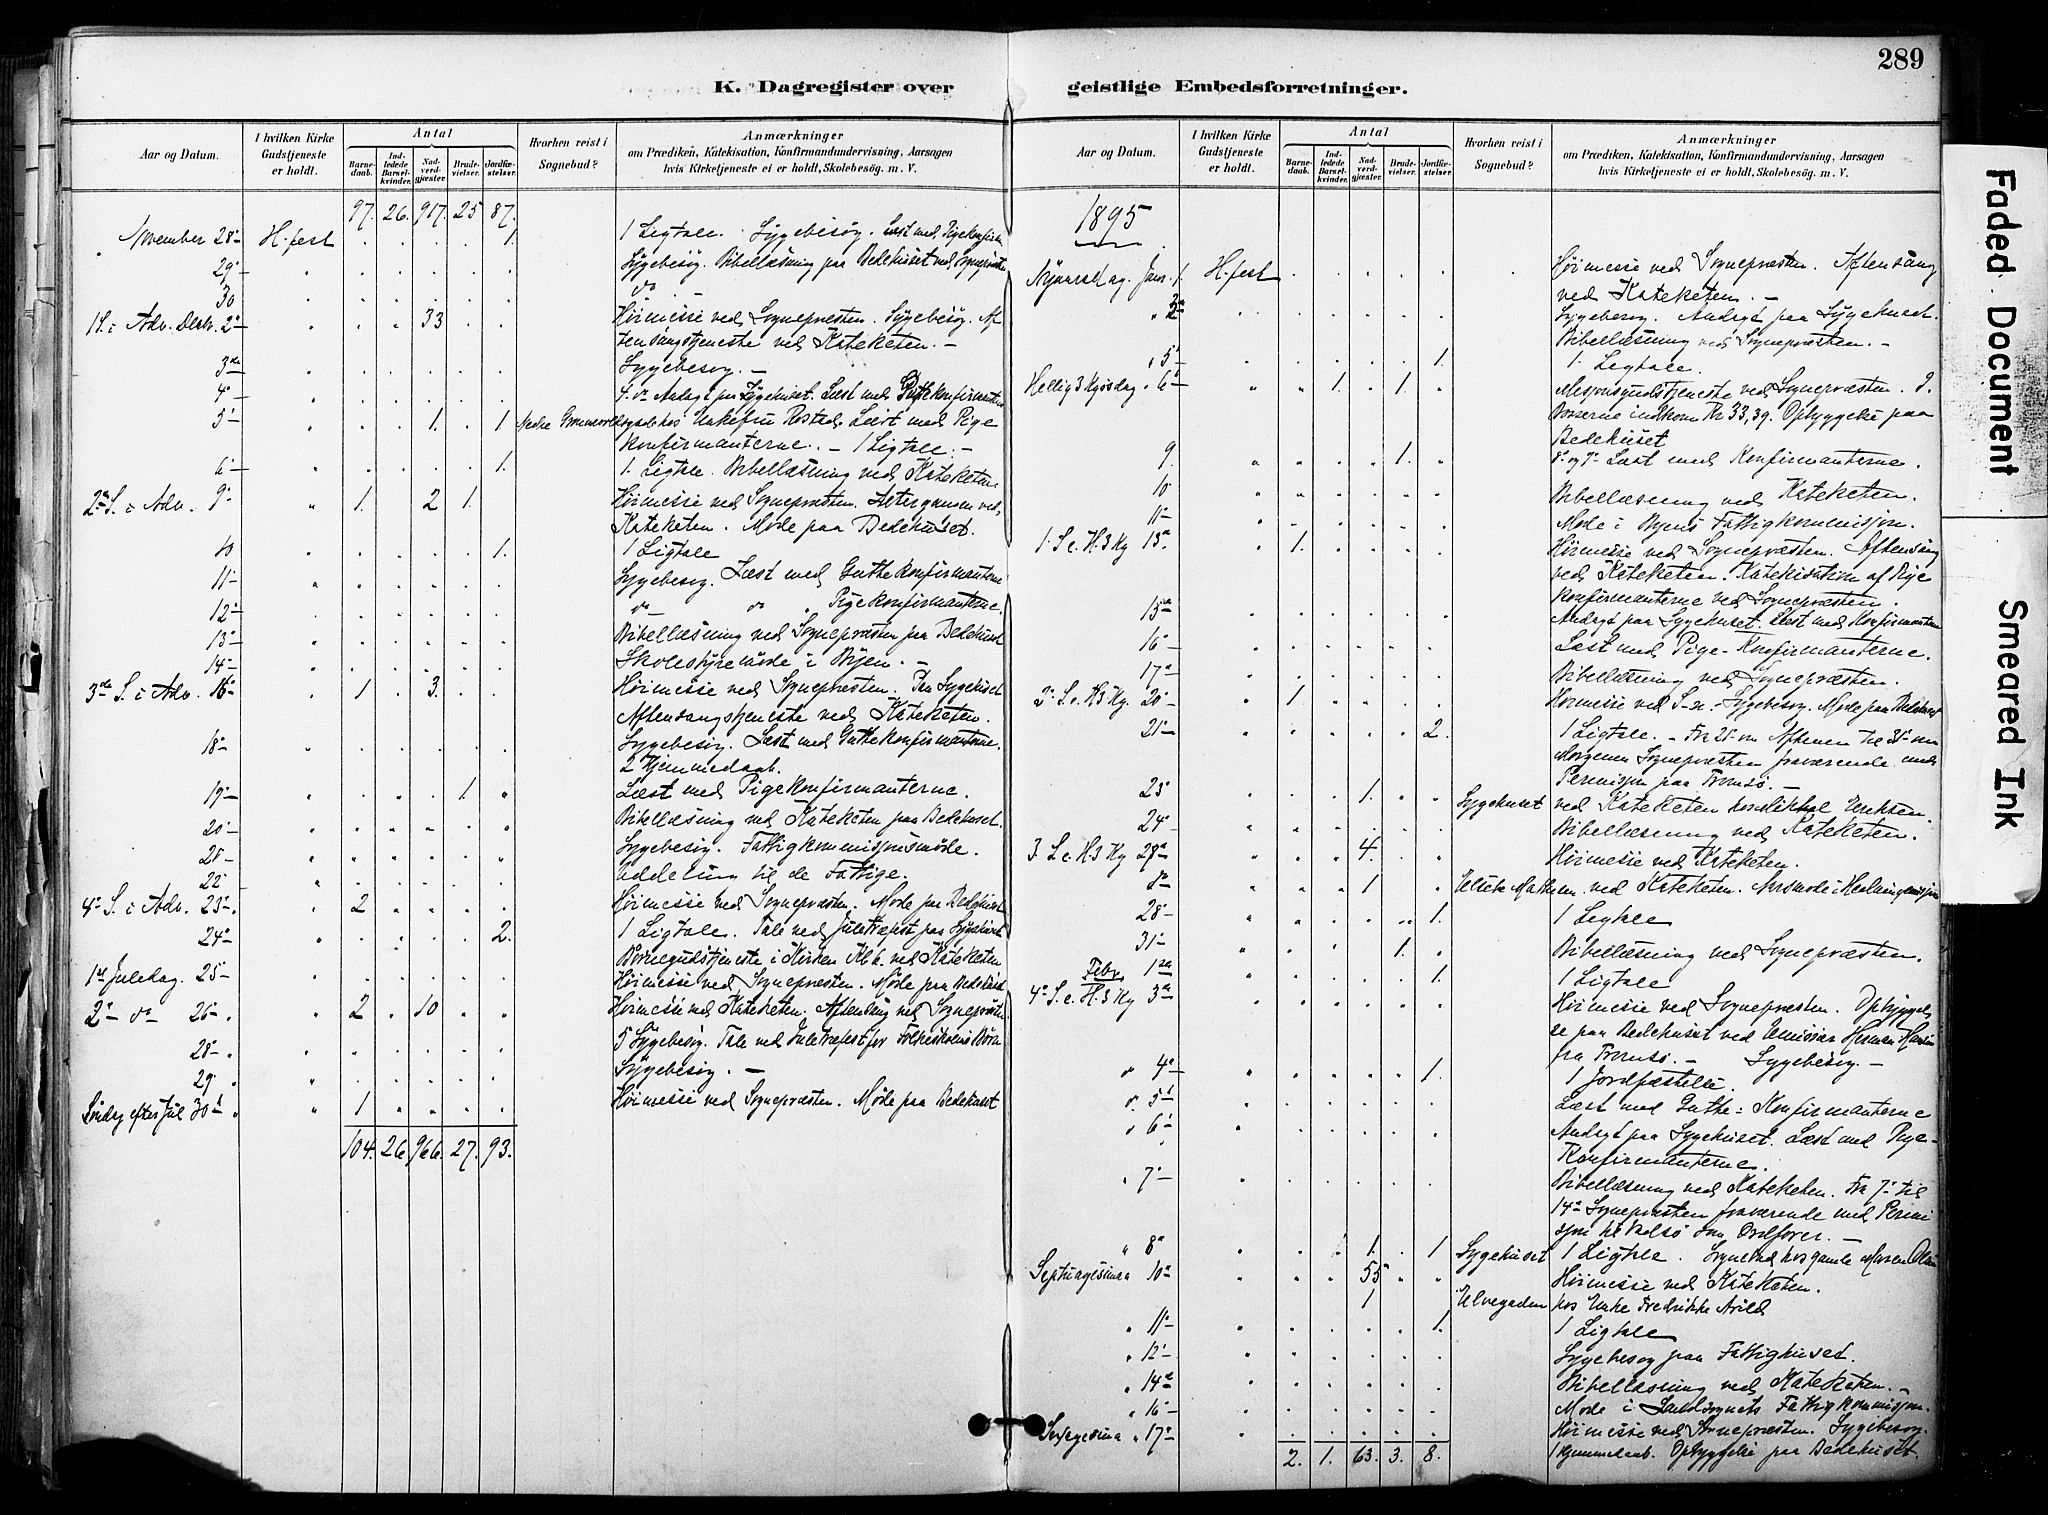 289
K. Dagregister over geistlige Embedsforretninger.
Aar og Datum.
I hvilken Kirke Gudstjeneste er holdt.
Antal
Barnedaab.
Indledede Barselkvinder.
Nadverdgjæster.
Brudevielser.
Jordfæstelser.
Hvorhen reist i Sognebud?
Anmærkninger
om Prædiken, Katekisation, Konfirmandundervisning, Aarsagen
hvis Kirketjeneste ei er holdt, Skolebesøg. m. V.
97. 26. 917. 25 87.
November 28 H.fest 1. 1 Ligtale. Sygebesøg. Læst med Pigekonfirm
29 Sygebesøg. Bibellæsning paa Bedehuset ved Sognepræsten
30 do
1 S. i Adv. Decbr. 2 33 Høimesse ved Sognepræsten. Sygebesøg. Af
tensangstjeneste ved Kateketen. -
3die Sygebesøg. -
4 Andagt paa Sygehuset. Læst med Guttekonfirmanterne
5 1. 1 Nedre hos Enkefru Rostad. Læst med Pige
konfirmanterne. - 1 Ligtale. -
6 1. 1. Ligtale. Bibellæsning ved Kateketen
2 S. i Adv. 9 1. 2 1. Høimesse ved Sognepræsten. Altergangen ved
Kateketen. Møde paa Bedehuset.
10 1. 1 Ligtale
11 Sygebesøg. Læst med Guttekonfirmanterne
12 do do Pigekonfirmanterne.
13 Bibellæsning ved Sognepræsten paa Bedehuset
14 Skolestyremøde i Byen. -
3die S. i Adv. 16 1 3. Høimesse ved Sognepræsten. Paa Sygehuset
Aftensangstjeneste ved Kateketen.
18 Sygebesøg. Læst med Guttekonfirmanterne.
2 Hjemmedaab.
19 1. Læst med Pigekonfirmanterne.
20 Bibellæsning ved Kateketen paa Bedehuset.
21 Sygebesøg. Fattigkommissjonsmøde.
22 Uddeling til de Fattige.
4 S. i Adv. 23 2 Høimesse ved Sognepræsten. Møde paa Bedehuset
24 2. 1 Ligtale. Tale ved Juletræfest paa Sygehuset
Børnegudstjeneste i Kirken Kl. 6. ved Kateketen
1ste Juledag. 25 Høimesse ved Sognepræsten. Møde paa Bedehuset
2 do 26 2 10 Høimesse ved Kateketen. Aftensang ved Sognepræsten
28 5 Sygebesøg. Tale ved Juletræfest for Folkeskolens Børn
29 Sygebesøg. -
Søndag efter Jul 30 1 Høimesse ved Sognepræsten. Møde paa Bedehuset
104. 26 966. 27. 93.
Aar og Datum.
I hvilken Kirke Gudstjeneste er holdt.
Antal
Barnedaab.
Indledede Barselkvinder.
Nadverdgjæster.
Brudevielser.
Jordfæstelser.
Hvorhen reist i Sognebud?
Anmærkninger
om Prædiken, Katekisation, Konfirmandundervisning, Aarsagen
hvis Kirketjeneste ei er holdt, Skolebesøg. m. V.
1895
Nyaarsdag. Janr. 1. H.fest Høimesse ved Sognepræsten. Aftensang
ved Kateketen. -
Sygebesøg. Andagt paa Sygehuset.
Bibellæsning ved Sognepræsten. -
5 1. 1. Ligtale.
Hellig 3 Kgsdag 6 1. 1. Messjonsgudstjeneste ved Sognepræsten. I
Bøsserne indkom Kr 33,39. Opbyggelse paa
Bedehuset
9. 1. 8 og 9 Læst med Konfirmanterne.
10 Bibellæsning ved Kateketen.
11 Møde i Byens Fattigkommissjon.
1. S. e. H. 3 Kg 13. 1. Høimesse ved Sognepræsten. Aftensang
ved Kateketen. Katekisation af Pige
konfirmanterne ved Sognepræsten.
15 Andagt paa Sygehuset. Læst med Konfirmanterne
16 Læst med Pige-Konfirmanterne.
17 Bibellæsning ved Sognepræsten.
2 S. e. H3 Kg. 20 1. Høimesse ved S-n. - Sygebesøg. Møde paa Bedehuset
21 2. 1 Ligtale. - Fra 21 Aftenen til 31
Morgenen Sognepræsten fraværende med
Permisjon paa Tromsø. -
23 1. Sygehuset ved Kateketen hos Eriksen.
24 Bibellæsning ved Kateketen.
3 S. e. H. 3 Kg 27 4. Høimesse ved Kateketen.
do 1 ved Kateketen. Aarsmøde i
28 1. 1 Ligtale
31 1. Bibellæsning ved Sognepræsten.
Febr 1 1. 1 Ligtale
4 S. e. H. 3 Kg 3 Høimesse ved Sognepræsten. Opbyggel
se paa Bedehuset ved Emissær Herman Hansen
fra Tromsø. - Sygebesøg. -
4 1. 1 Jordfæstelse.
5 Læst med Gutte-Konfirmanterne
6 Andagt paa Sygehuset. Læst med Pige-
Konfirmanterne.
7 Bibellæsning ved Kateketen. Fra 7 til
14 Sognepræsten fraværende med Permi
sjon til Vadsø som Ordfører. -
8 1. 1 Sygehuset 1 Ligtale. Sognebud hos gamle Maren
Septuagesima 10 55 Høimesse ved Kateketen.
1 Elvegaden hos Enke Fredrikke Arild
11 1. 1 Ligtale
12 Sygebesøg paa Fattighuset.
14 Bibellæsning ved Kateketen. -
16 Møde i Landsognets Fattigkommissjon.
Sexagesima 17 Høimesse ved Sognepræsten. Sygebesøg.
2. 1. 63. 3. 8. 1 Hjemmedaab. Opbyggelse paa Bedehuset.
Faded Document
Smeared Ink